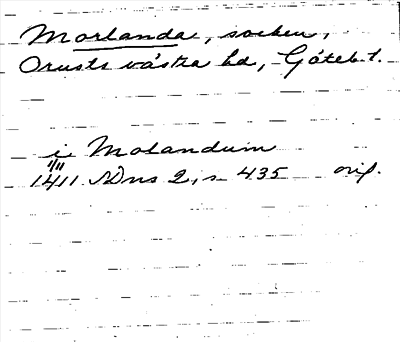 Morlanda, socken,
Orusts västra hd, Göteb. l.
i Molandum
1/11
1411 SDns 2, s 435 orig.